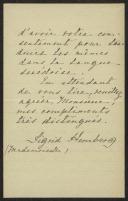 d'avoir votre con-
sentement pour tra-
duire les mêmes
dans la langue
suédoise.
En attendant
de vous lire, veuillez
agréer, Monsieur,
mes compliments
très distingués.
Sigrid